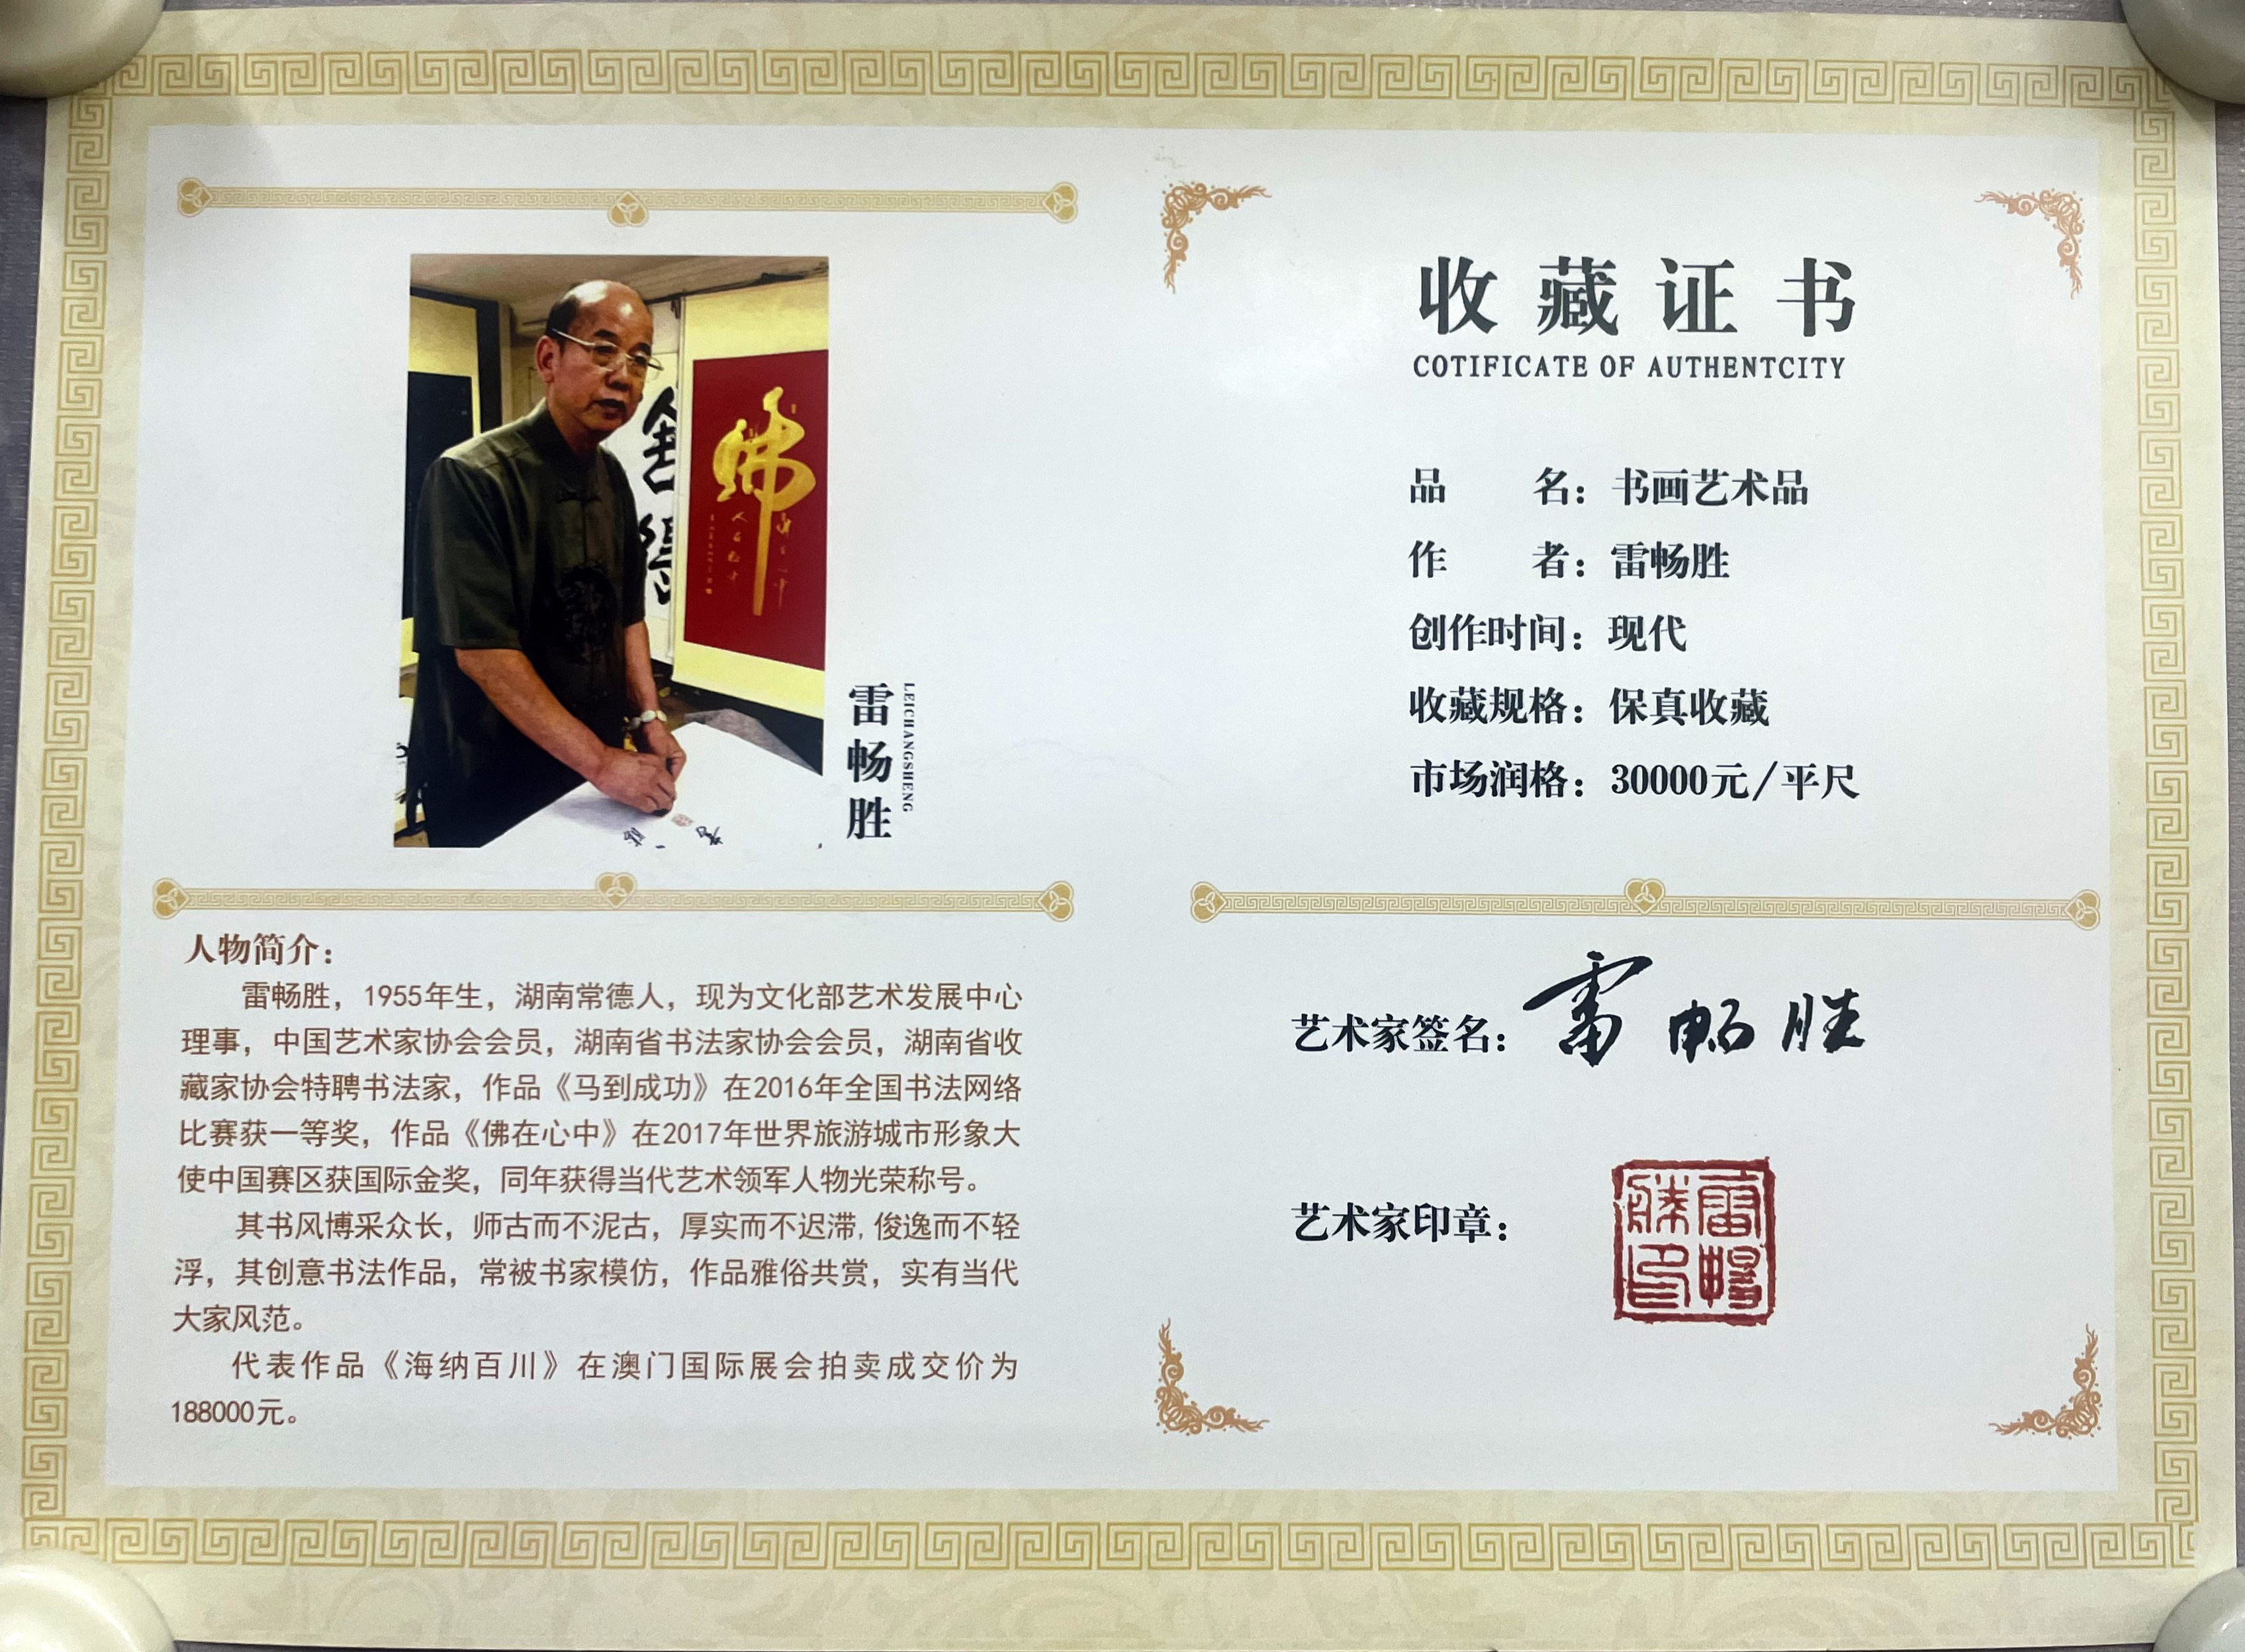 佛
雷畅胜
LEICHANGSHENG
人物简介：
雷畅胜，1955年生，湖南常德人，现为文化部艺术发展中心
理事，中国艺术家协会会员，湖南省书法家协会会员，湖南省收
藏家协会特聘书法家，作品《马到成功》在2016年全国书法网络
比赛获一等奖，作品《佛在心中》在2017年世界旅游城市形象大
使中国赛区获国际金奖，同年获得当代艺术领军人物光荣称号。
其书风博采众长，师古而不泥古，厚实而不迟滞，俊逸而不轻
浮，其创意书法作品，常被书家模仿，作品雅俗共赏，实有当代
大家风范。
代表作品《海纳百川》在澳门国际展会拍卖成交价为
188000元。
收藏证书
COTIFICATE OF AUTHENTCITY
品 名：书画艺术品
作 者：雷畅胜
创作时间：现代
收藏规格：保真收藏
市场润格：30000元/平尺
艺术家签名：雷畅胜
艺术家印章：
雷暢勝印